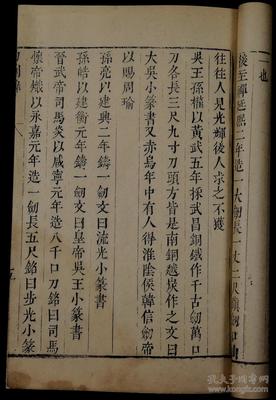 後主禪延熙二年造一大劍長一丈二尺鎮劍口山
往往人見光輝後人求之不獲
吳王孫權以黃武五年採武昌銅鐵作千古劔萬口
刀各長三尺九寸刀頭方皆是南銅越炭作之文曰
大吳小篆書又赤烏年中有人得淮陰侯韓信劔帝
以賜周瑜
孫亮以建興二年鑄一劔文曰流光小篆書
孫皓以建衡元年鑄一劔文曰皇帝吳王小篆書
晉武帝司馬炎以咸寧元年造八千口刀銘曰司馬
懷帝熾以永嘉元年造一劔長五尺銘曰步光小篆
刀劍錄
五